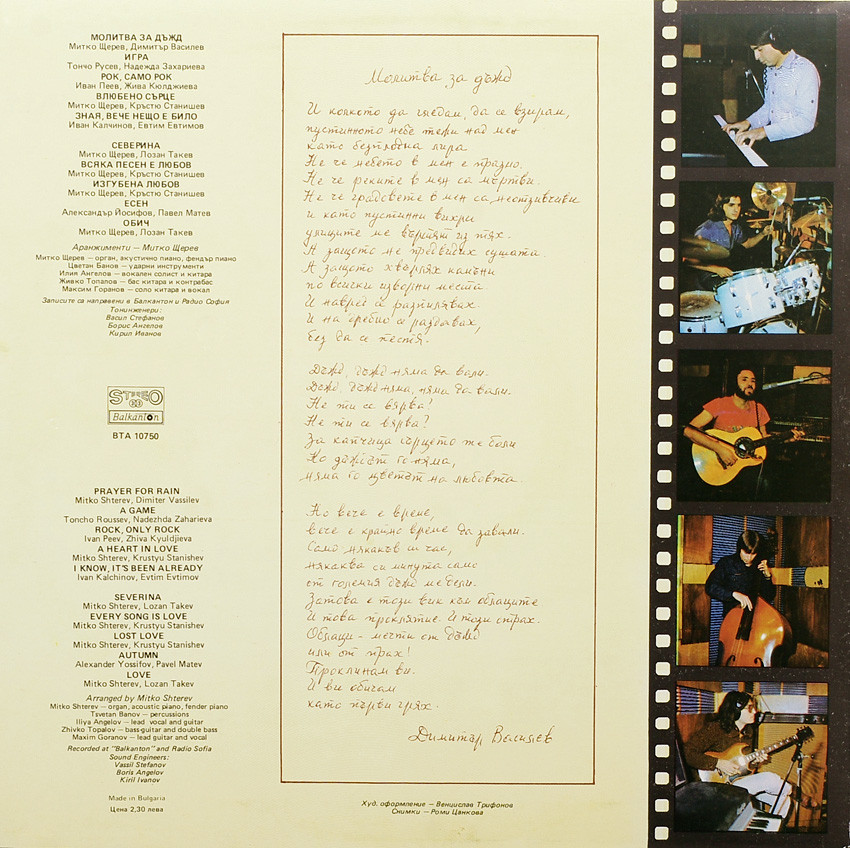 МОЛИТВА ЗА ДЪЖД
Митко Щерев, Димитър Василев
ИГРА
Тончо Русев, Надежда Захариева
РОК, САМО РОК
Иван Пеев, Жива Кюлджиева
ВЛЮБЕНО СЪРЦЕ
Митко Щерев, Кръстю Станишев
ЗНАЯ, ВЕЧЕ НЕЩО Е БИЛО
Иван Калчинов, Евтим Евтимов
СЕВЕРИНА
Митко Щерев, Лозан Такев
ВСЯКА ПЕСЕН Е ЛЮБОВ
Митко Щерев, Кръстю Станишев
ИЗГУБЕНА ЛЮБОВ
Митко Щерев, Кръстю Станишев
ЕСЕН
Александър Йосифов, Павел Матев
ОБИЧ
Митко Щерев, Лозан Такев
Аранжименти — Митко Щерев
Митко Щерев — орган, акустично пиано, фендър пиано
Цветан Банов — ударни инструменти
Илия Ангелов — вокален солист и китара
Живко Топалов — бас китара и контрабас
Максим Горанов — соло китара и вокал
Записите са направени в Балкантон и Радио София
Тонинженери:
Васил Стефанов
Борис Ангелов
Кирил Иванов
STEREO
Balkanton
ВТА 10750
PRAYER FOR RAIN
Mitko Shterev, Dimiter Vassilev
A GAME
Toncho Roussev, Nadezhda Zaharieva
ROCK, ONLY ROCK
Ivan Peev, Zhiva Kyuldjieva
A HEART IN LOVE
Mitko Shterev, Krustyu Stanishev
I KNOW, IT'S BEEN ALREADY
Ivan Kalchinov, Evtim Evtimov
SEVERINA
Mitko Shterev, Lozan Takev
EVERY SONG IS LOVE
Mitko Shterev, Krustyu Stanishev
LOST LOVE
Mitko Shterev, Krustyu Stanishev
AUTUMN
Alexander Yossifov, Pavel Matev
LOVE
Mitko Shterev, Lozan Takev
Arranged by Mitko Shterev
Mitko Shterev — organ, acoustic piano, fender piano
Tsvetan Banov — percussions
Iliya Angelov — lead vocal and guitar
Zhivko Topalov — bass guitar and double bass
Maxim Goranov — lead guitar and vocal
Recorded at "Balkanton" and Radio Sofia
Sound Engineers:
Vassil Stefanov
Boris Angelov
Kiril Ivanov
Made in Bulgaria
Цена 2,30 лева
Молитва за дъжд
И колкото да гледам, да се взирам,
пустинното небе тежи над мен
като безпръдна лира.
Не че небето в мен е празно.
Не че реките в мен са мъртви.
Не че градовете в мен са неотзивчиви
и като пустинни вихри
улиците ме въртят из тях.
А защото не предвидих сушата.
А защото хвърлях камъни
по всички изворни места.
И навред се разпилявах
И на дребно се раздавах,
без да се пестя.
Дъжд, дъжд няма да вали.
Дъжд, дъжд няма, няма да вали.
Не ти се вярва!
Не ти се вярва?
За капчица сърцето ме боли
Но дъждът го няма,
няма го цветът на любовта.
Но вече е време,
вече е крайно време да завали.
Само някакъв си час,
някаква си минута само
от големия дъжд ме дели.
Затова е този вик към облаците
И това проклятие. И този страх.
Облаци - мечти от дъжд
или от прах!
Проклинам ви.
И ви обичам
като първи грях.
Димитър Василев
Худ. оформление — Венцислав Трифонов
Снимки — Роми Цанкова